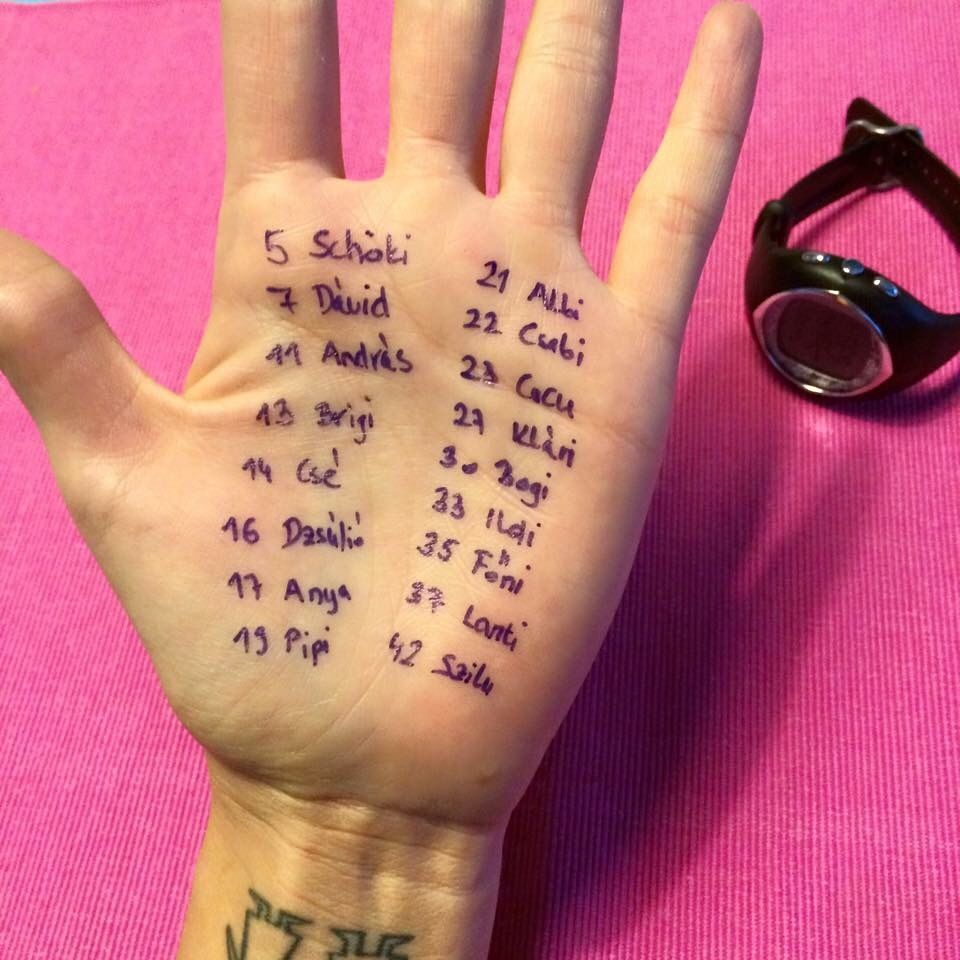 5 Schöki
7 Dávid
11 András
13 Brigi
14 Csé
16 Dzsúlió
17 Anya
19 Pipi
21 Albi
22 Csabi
23 Cucu
27 Klári
30 Bogi
33 Ildi
35 Főni
37 Lanti
42 Szilu